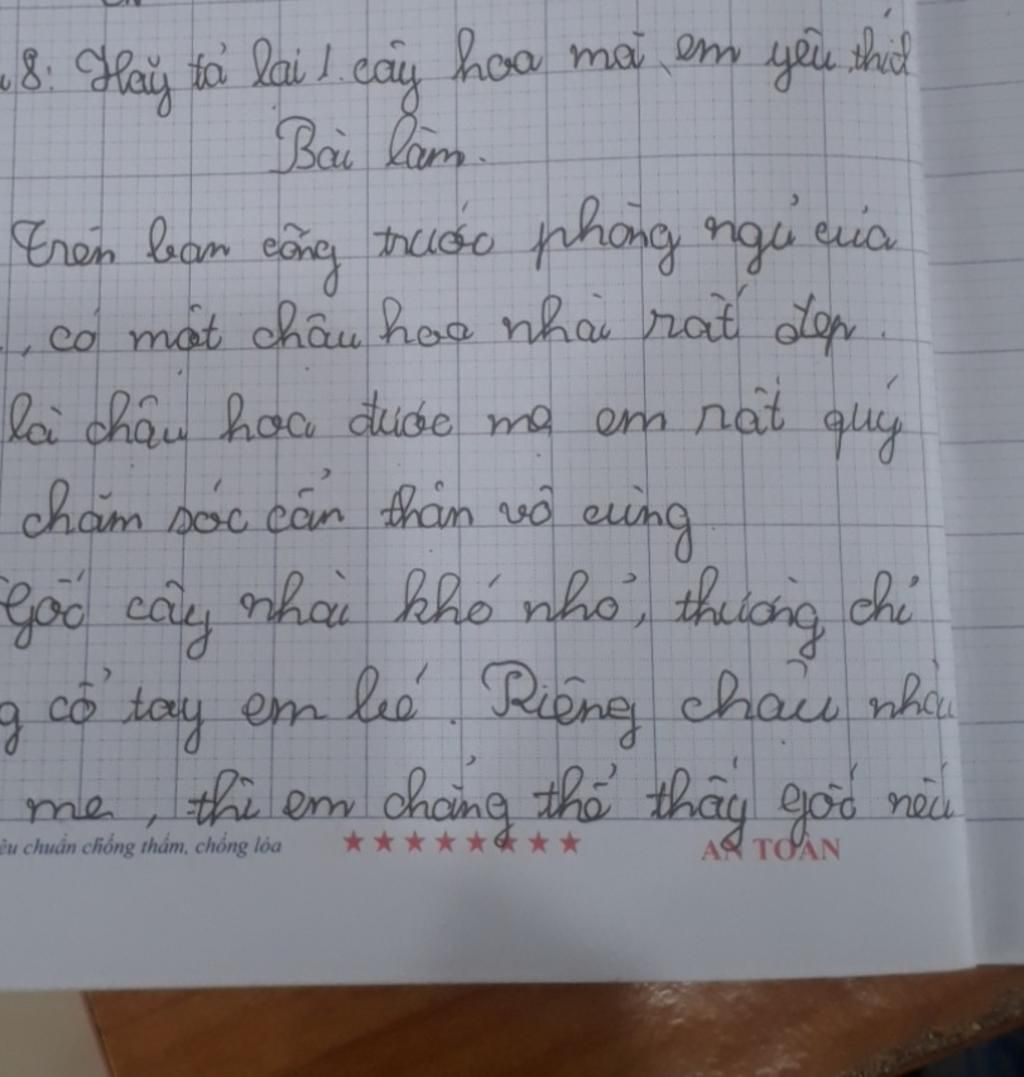 8: Hãy tả lại 1 cây hoa mà em yêu thíc
Bài làm.
Trên ban công trước phòng ngủ của
, có một chậu hoa nhài rất đẹp.
là chậu hoa được mẹ em rất quý
chăm sóc cẩn thận vô cùng
gốc cây nhài khá nhỏ, thường chỉ
g cổ tay em bé. Riêng chậu nhà
mẹ, thì em chẳng thể thấy gốc nếu
êu chuẩn chống thấm, chống lóa
AN TOÀN